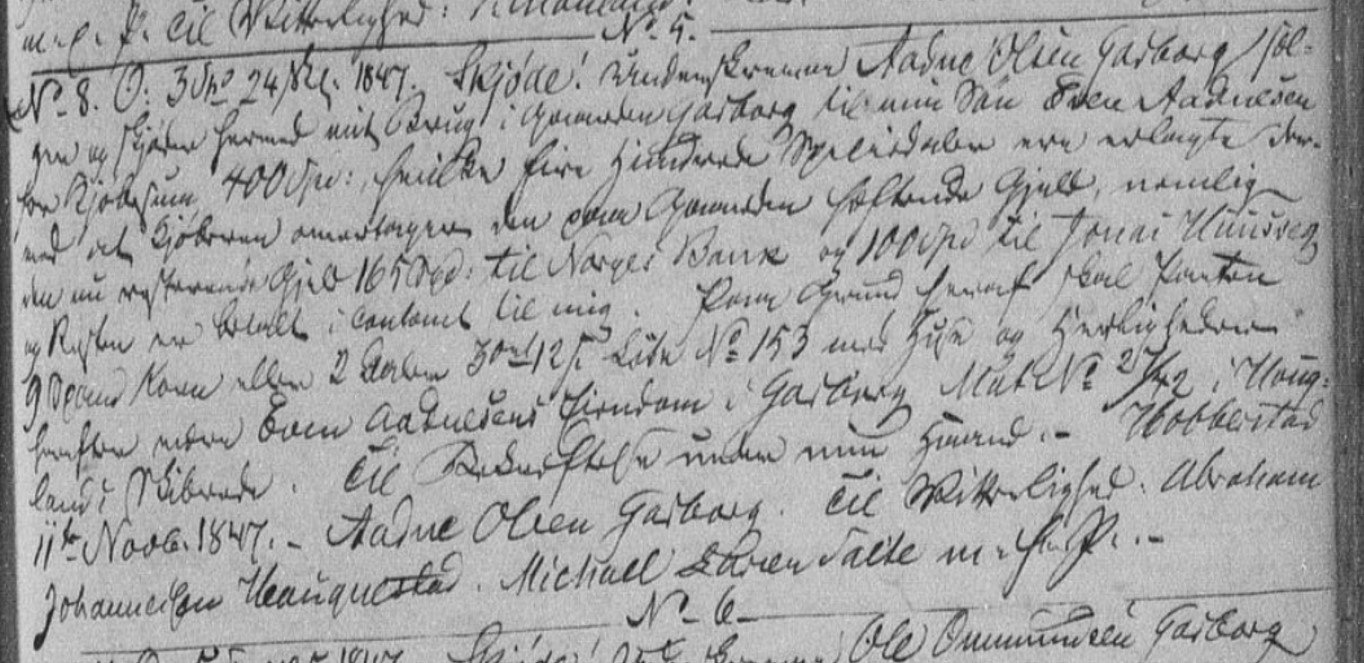 m. f. P. Til Vitterlighed:
No 5.
No 8. O. 3 24 1847. Skjøde! Undertegnede Aadne Olsen Garborg sæl-
ger og skjøder hermed mit Brug i Gaarden Garborg til min Søn Even Aadnesen
for Kjøbesum 400 Spd:, hvilke fire Hundrede Speciedaler ere erlagte der-
ved at Kjøberen overtager den paa Gaarden heftende Gjeld, nemlig
den nu resterende Gjeld 165 Spd: til Norges Bank og 100 Spd til Jonas
og Resten er betalt i Contant til mig. Paa Grund heraf skal Parten
9 Spand Korn eller 2 Daler 3 Ort 12 s. Løbe No 153 med Huse og Herligheder
herefter være Even Aadnesens Eiendom i Garborg Mat. No 27/42 i Houg-
lands Skibrede. Til Bekræftelse under min Haand. - Hobberstad
11te Novb. 1847. - Aadne Olsen Garborg. Til Vitterlighed: Abraham
Johannesen Haauguestad. Michael Salte m. f. P. -
No 6
1847. Skjøde! Ole Ommundsen Garborg